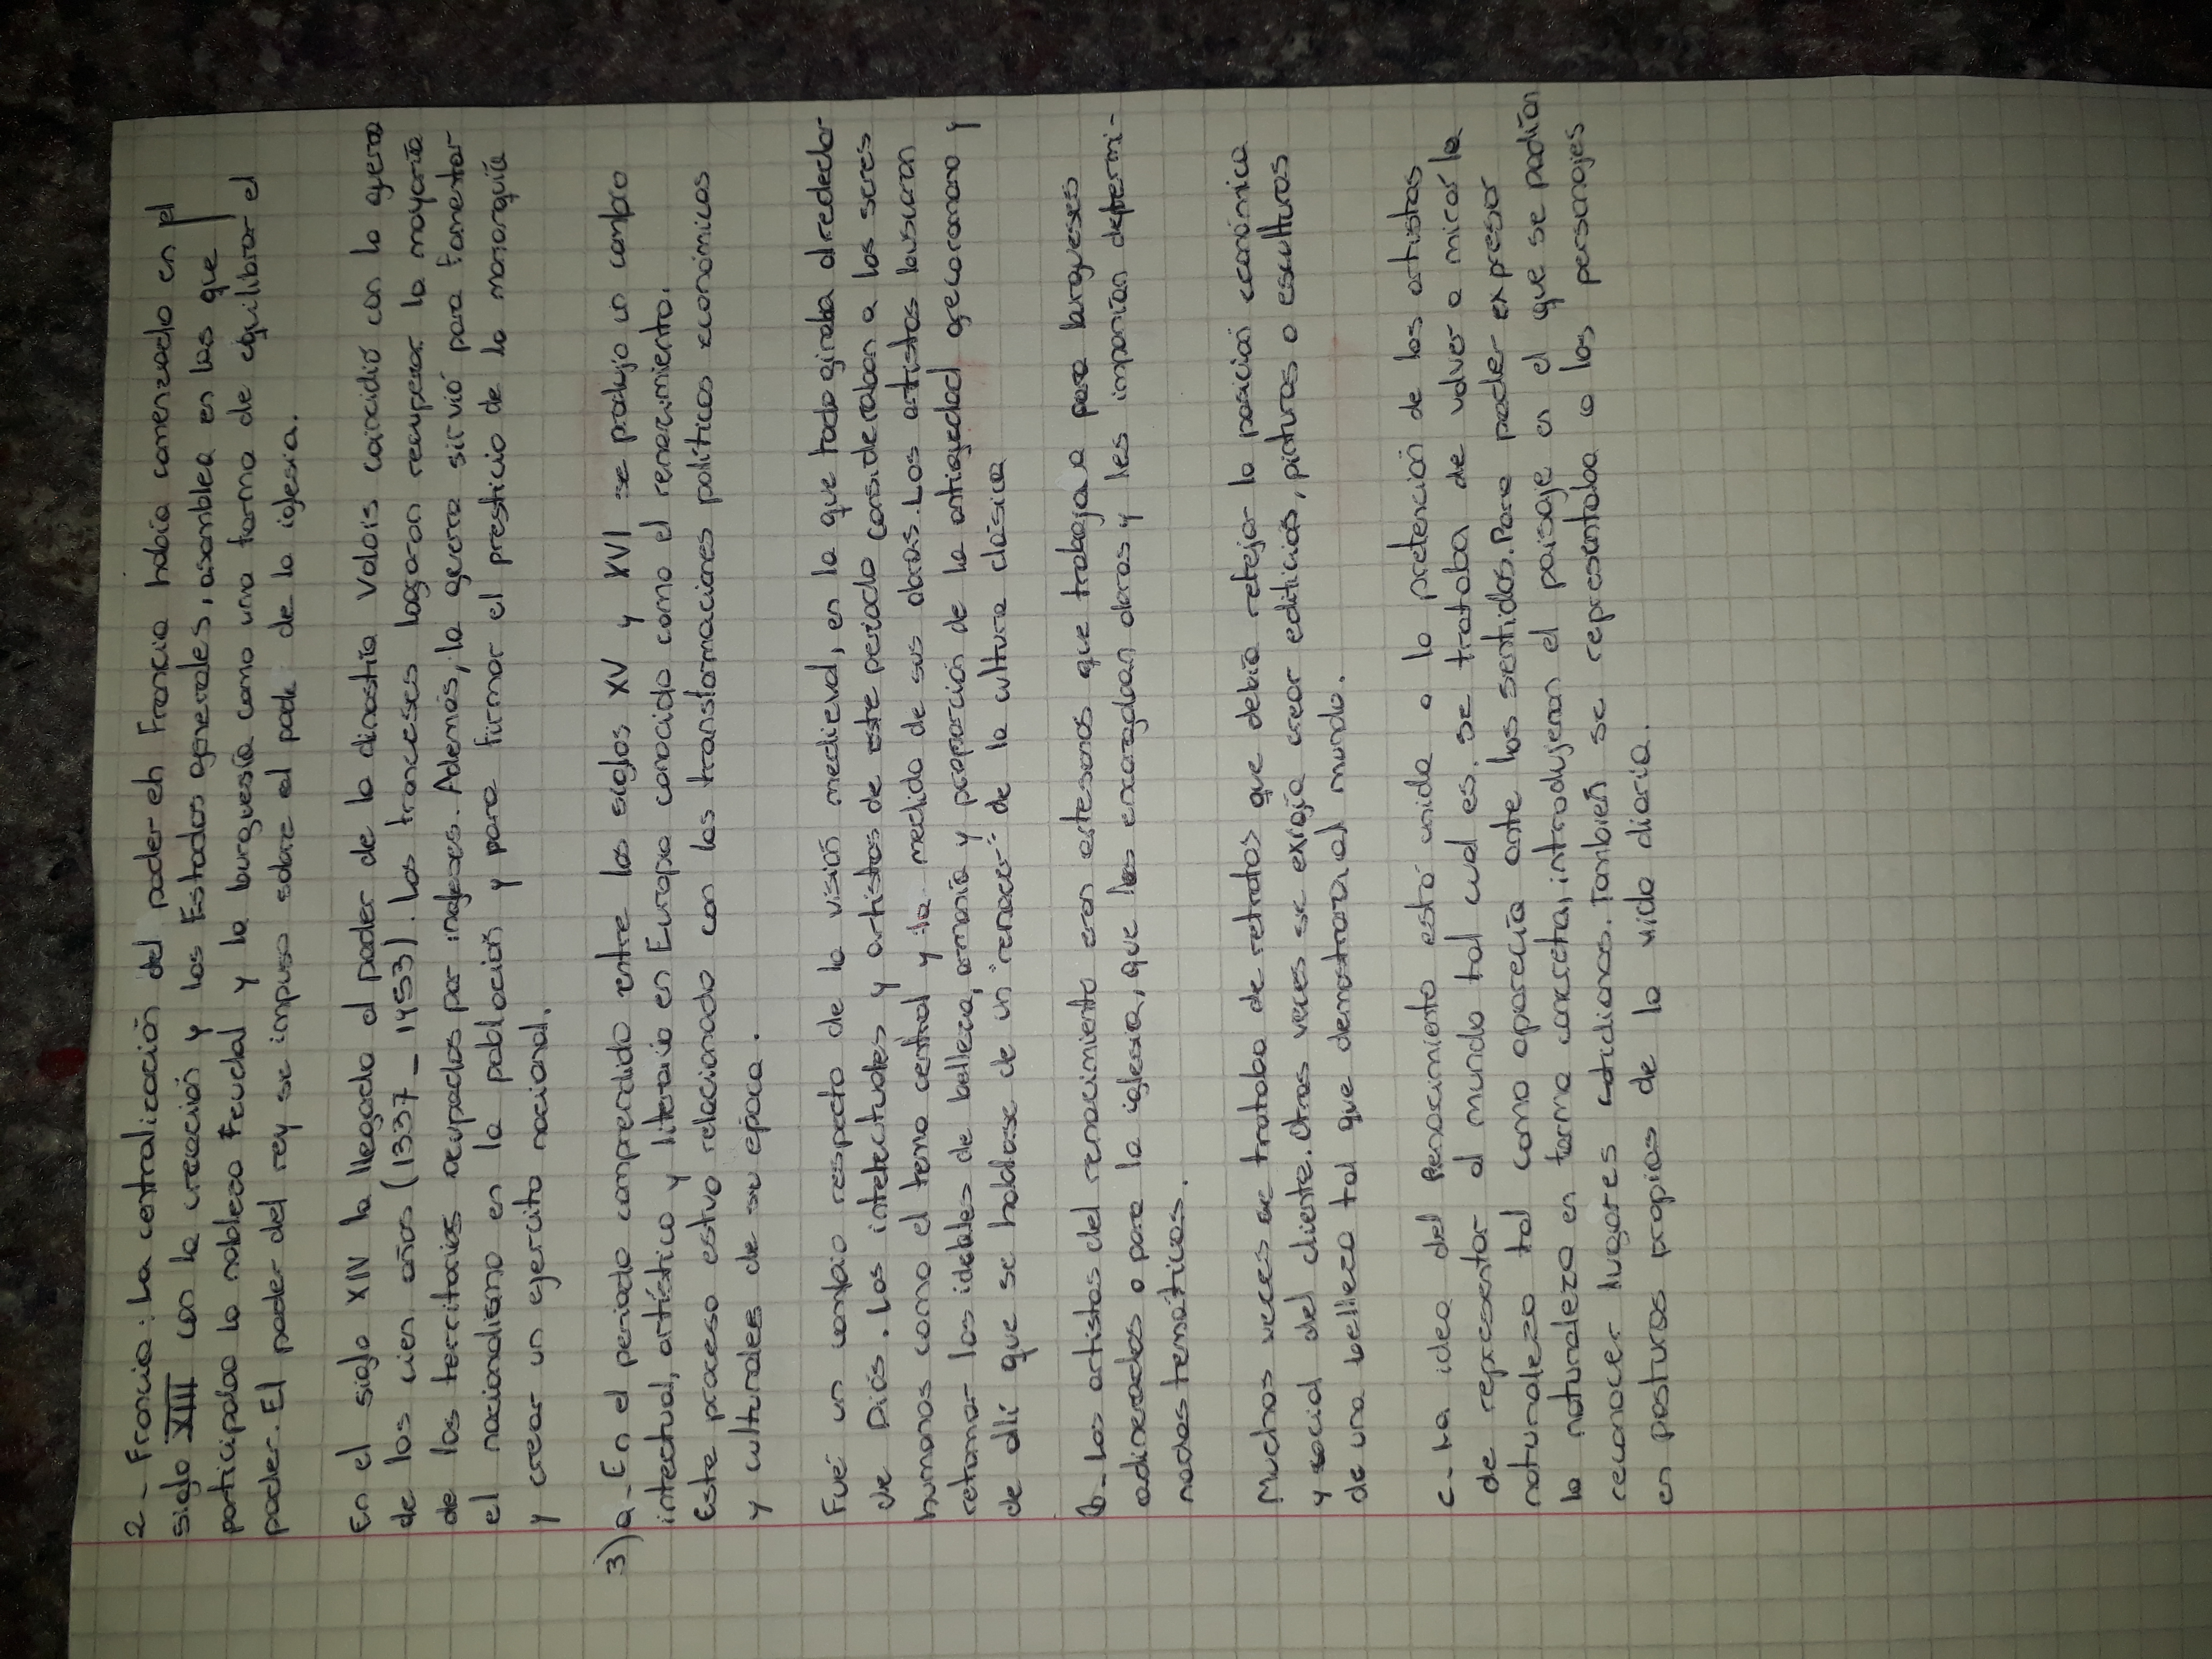 2- Francia: La centralización del poder en Francia había comenzado en el
siglo XIII con la creación y los Estados generales, asamblea en las que
participaba la nobleza Feudal y la burguesía como una forma de equilibrar el
poder. El poder del rey se impuso sobre el pode de la iglesia.
En el siglo XIV la llegada al poder de la dinastía Valois coincidió con la gerra
de los cien años (1337_1453). Los franceses lograron recuperar la mayoría
de los territorios ocupados por ingleses. Además, la guerra sirvió para fomentar
el nacionalismo en la población y para firmar el presticio de la monarquía
y crear un ejercito nacional.
3)a- En el periodo comprendido entre los siglos XV y XVI se produjo un cambio
intectual, artístico y literario en Europa conocido como el renacimiento.
Este proceso estuvo relacionado con las transformaciones políticas económicas
y culturales de su época.
Fué un cambio respecto de la visión medieval, en la que todo giraba alrededor
de Dios. Los intelectuales y artistas de este periodo consideraban a los seres
humanos como el tema central y la medida de sus obras. Los artistas buscaron
retomar los ideales de belleza, armonía y proporción de la antiguedad grecoromana y
de allí que se hablase de un "renacer" de la cultura clásica
b- Los artistas del renacimiento eran artesanos que trabajaba para burgueses
adinerados o para la iglesia, que les encargaban obras y les imponían determi-
nadas temáticas.
Muchas veces se trataba de retratos que debía reflejar la posición económica
y social del cliente. Otras veces se exigía crear edificios, pinturas o esculturas
de una belleza tal que demostrara al mundo.
c- La idea del Renacimiento está unida a la pretención de los artistas
de representar al mundo tal cual es. se trataba de volver a mirar la
naturaleza tal como aparecía ante los sentidos. Para poder expresar
la naturaleza en forma concreta, introdujeron el paisaje en el que se podían
reconocer lugares cotidianos. También se representaba a los personajes
en posturas propias de la vida diaria.